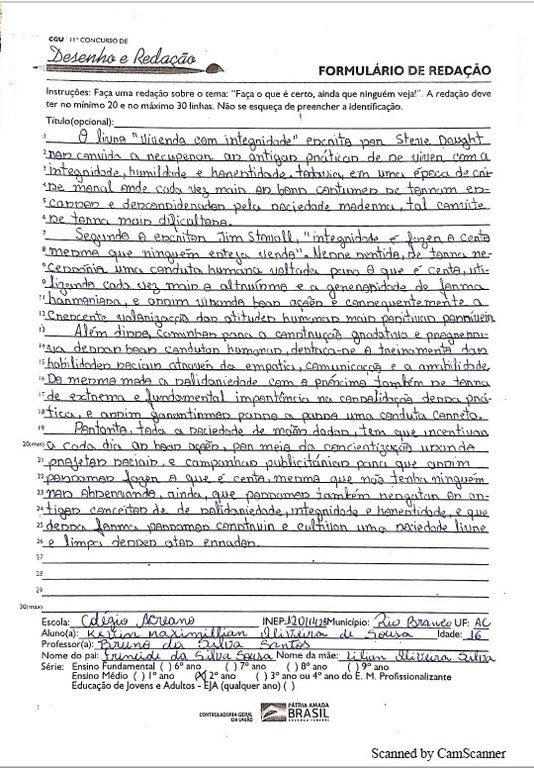 CGU 11º CONCURSO DE
Desenho e Redação
FORMULÁRIO DE REDAÇÃO
Instruções: Faça uma redação sobre o tema: "Faça o que é certo, ainda que ninguém veja!". A redação deve
ter no mínimo 20 e no máximo 30 linhas. Não se esqueça de preencher a identificação.
Título(opcional):
1 O livro "Vivendo com integridade" escrito por Steve
2 nos convida a recuperar as antigas práticas de se viver com a
3 integridade, humildade e honestidade, todavia, em uma época de cri-
4 se moral onde cada vez mais os bons costumes se tornam es-
5 cassos e desconsiderados pela sociedade moderna, tal convite
6 se torna mais dificultoso.
7 Segundo o escritor Jim Stovall, "integridade é fazer o certo
8 mesmo que ninguém esteja vendo". Nesse sentido, se torna ne-
9 cessária uma conduta humana voltada para o que é certo, uti-
10 lizando cada vez mais o altruísmo e a generosidade de forma
11 harmoniosa, e assim visando boas ações e consequentemente a
12 crescente valorização das atitudes humanas mais positivas possíveis
13 Além disso, caminhar para a construção gradativa e progressi-
14 va dessas boas condutas humanas, destaca-se o treinamento das
15 habilidades sociais através da empatia, comunicação e a amabilidade.
16 Do mesmo modo a solidariedade com o próximo também se torna
17 de extrema e fundamental importância na consolidação dessa prá-
18 tica, e assim garantirmos passo a passo uma conduta correta.
19 Portanto, toda a sociedade de mãos dadas, tem que incentivar
20(mín) a cada dia as boas ações, por meio da concientização usando
21 projetos sociais, e campanhas publicitárias para que assim
22 possamos fazer o que é certo, mesmo que não tenha ninguém
23 nos observando, ainda, que possamos também resgatar os an-
24 tigos conceitos de de solidariedade, integridade e honestidade, e que
25 dessa forma possamos construir e cultivar uma sociedade livre
26 e limpa desses atos errados.
27
28
29
30(máx)
Escola: Colégio Acreano INEP: Município: Rio Branco UF: AC
Aluno(a): Kevin Maximillian Oliveira de Sousa Idade: 16
Professor(a): Bruno da Silva Santos
Nome do pai: da Silva Sousa Nome da mãe: Lilian Oliveira Silva
Série: Ensino Fundamental ( ) 6º ano ( ) 7º ano ( ) 8º ano ( ) 9º ano
Ensino Médio ( ) 1º ano (X) 2º ano ( ) 3º ano ou 4º ano do E. M. Profissionalizante
Educação de Jovens e Adultos - EJA (qualquer ano) ( )
CONTROLADORIA-GERAL DA UNIÃO
PÁTRIA AMADA
BRASIL
GOVERNO FEDERAL
Scanned by CamScanner